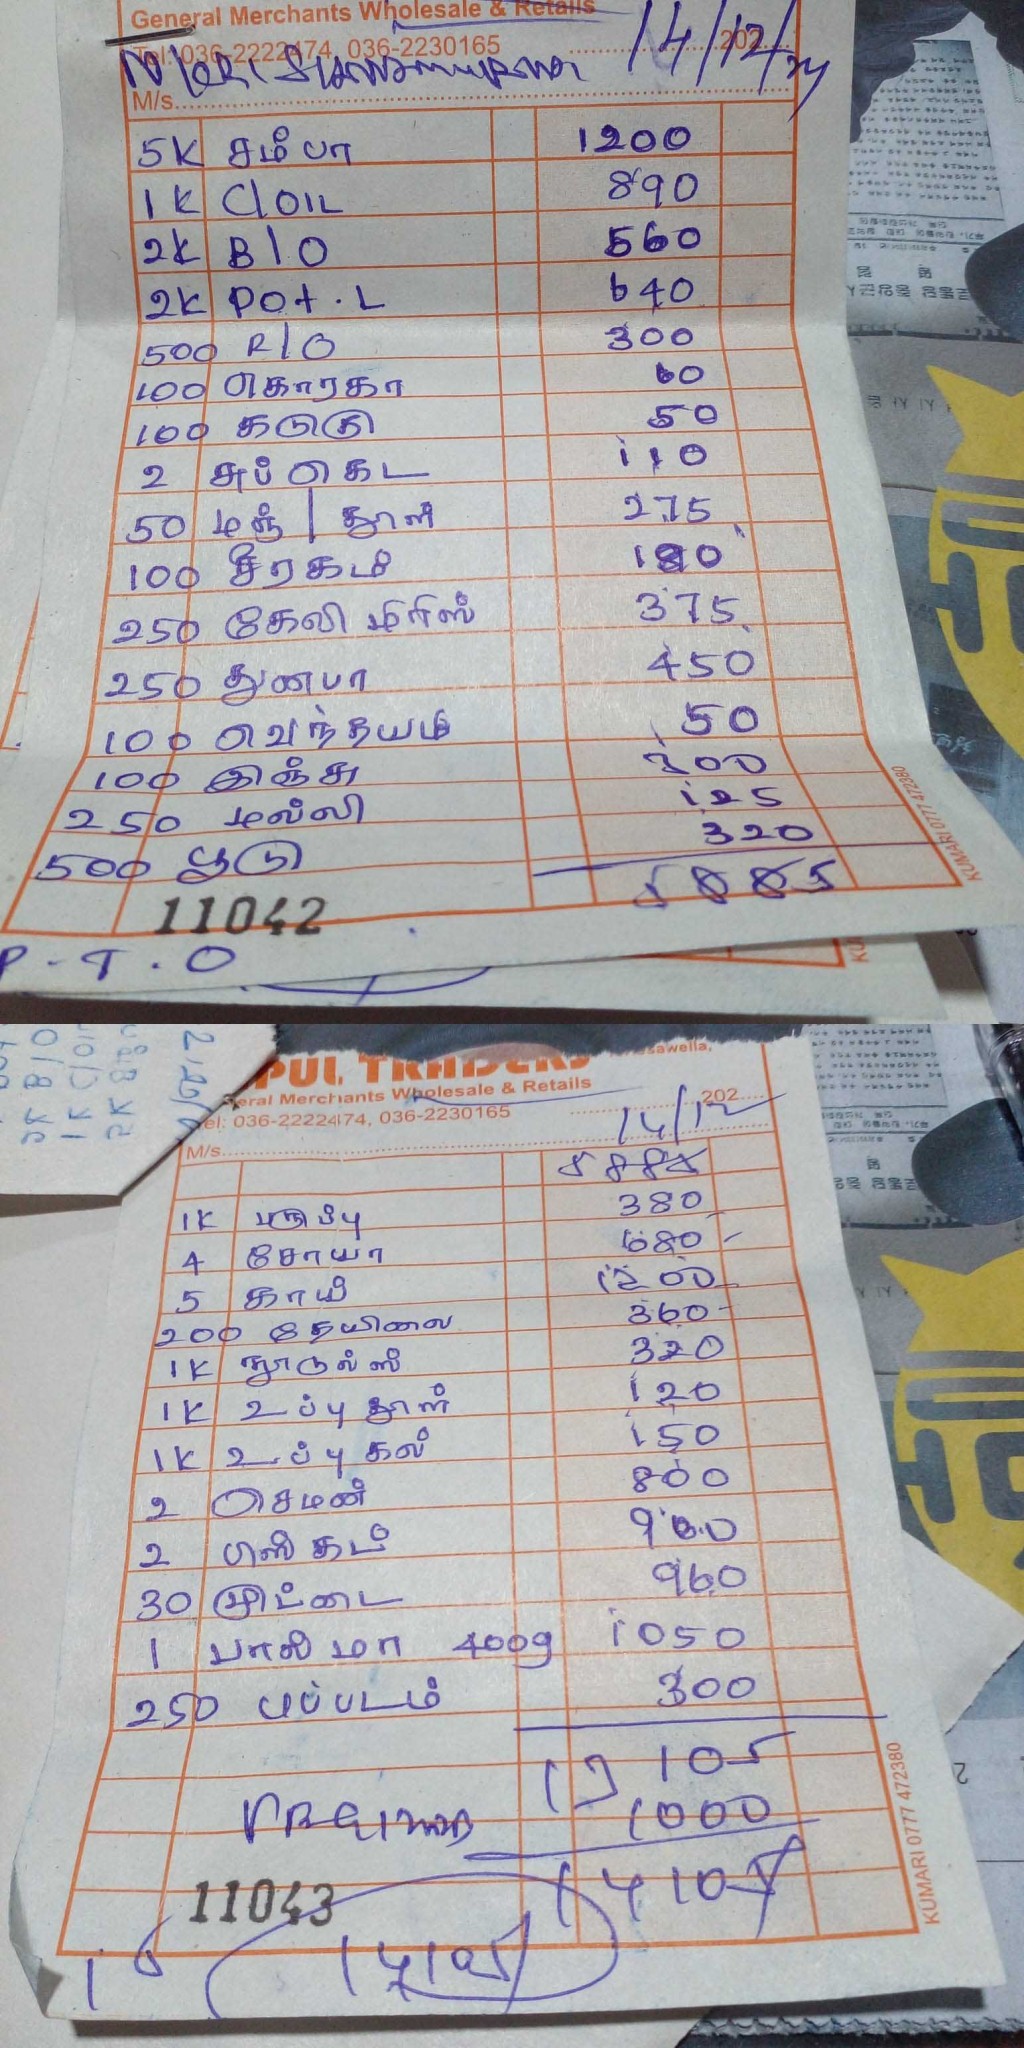 General Merchants Wholesale & Retails
Tel: 036-2222474, 036-2230165 202
14/12/24
M/s
5K சம்பா 1200
1K C/OIL 890
2K B/O 560
2K Pot.L 640
500 R/O 300
100 கொரகா 60
100 கடுகு 50
2 அப்கெட 110
50 மஞ்/தூள் 275
100 சீரகம் 180
250 கேலி மிரிஸ் 375
250 துனபா 450
100 வெந்தயம் 50
100 இஞ்சு 200
250 மல்லி 125
500 பூடு 320
5885
11042
KUMARI 0777 472380
P.T.O
PUL TRADERS
eral Merchants Wholesale & Retails
Tel: 036-2222474, 036-2230165 202
14/12
M/s
5885
1K பருப்பு 380
4 சோயா 680
5 காய் 1200
200 தேயிலை 360
1K நூடுல்ஸ் 320
1K உப்பு தூள் 120
1K உப்பு கல் 150
2 செமன் 800
2 900
30 முட்டை 960
1 பால் மா 400g 1050
250 பப்படம் 300
13105
1000
14105
11043
14105
KUMARI 0777 472380